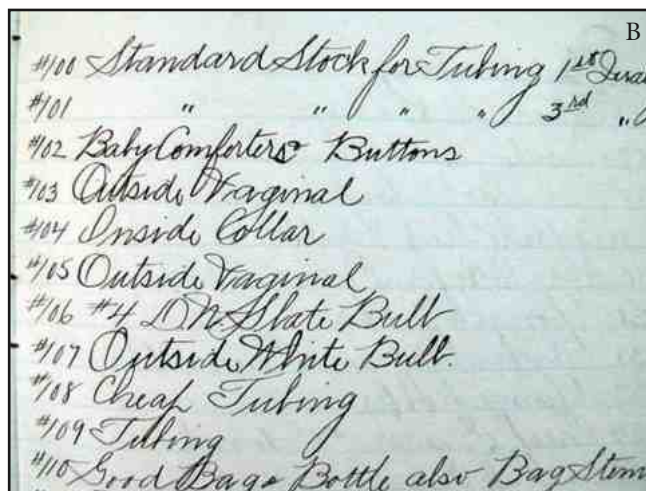 B
#100 Standard Stock for Tubing 1st
#101 " " " " 3rd "
#102 Baby Comforters Buttons
#103 Outside Vaginal
#104 Inside Collar
#105 Outside Vaginal
#106 #4 D.N. Slate Bulb
#107 Outside White Bulb.
#108 Cheap Tubing
#109 Tubing
#110 Good Bag & Bottle also Bag Stem